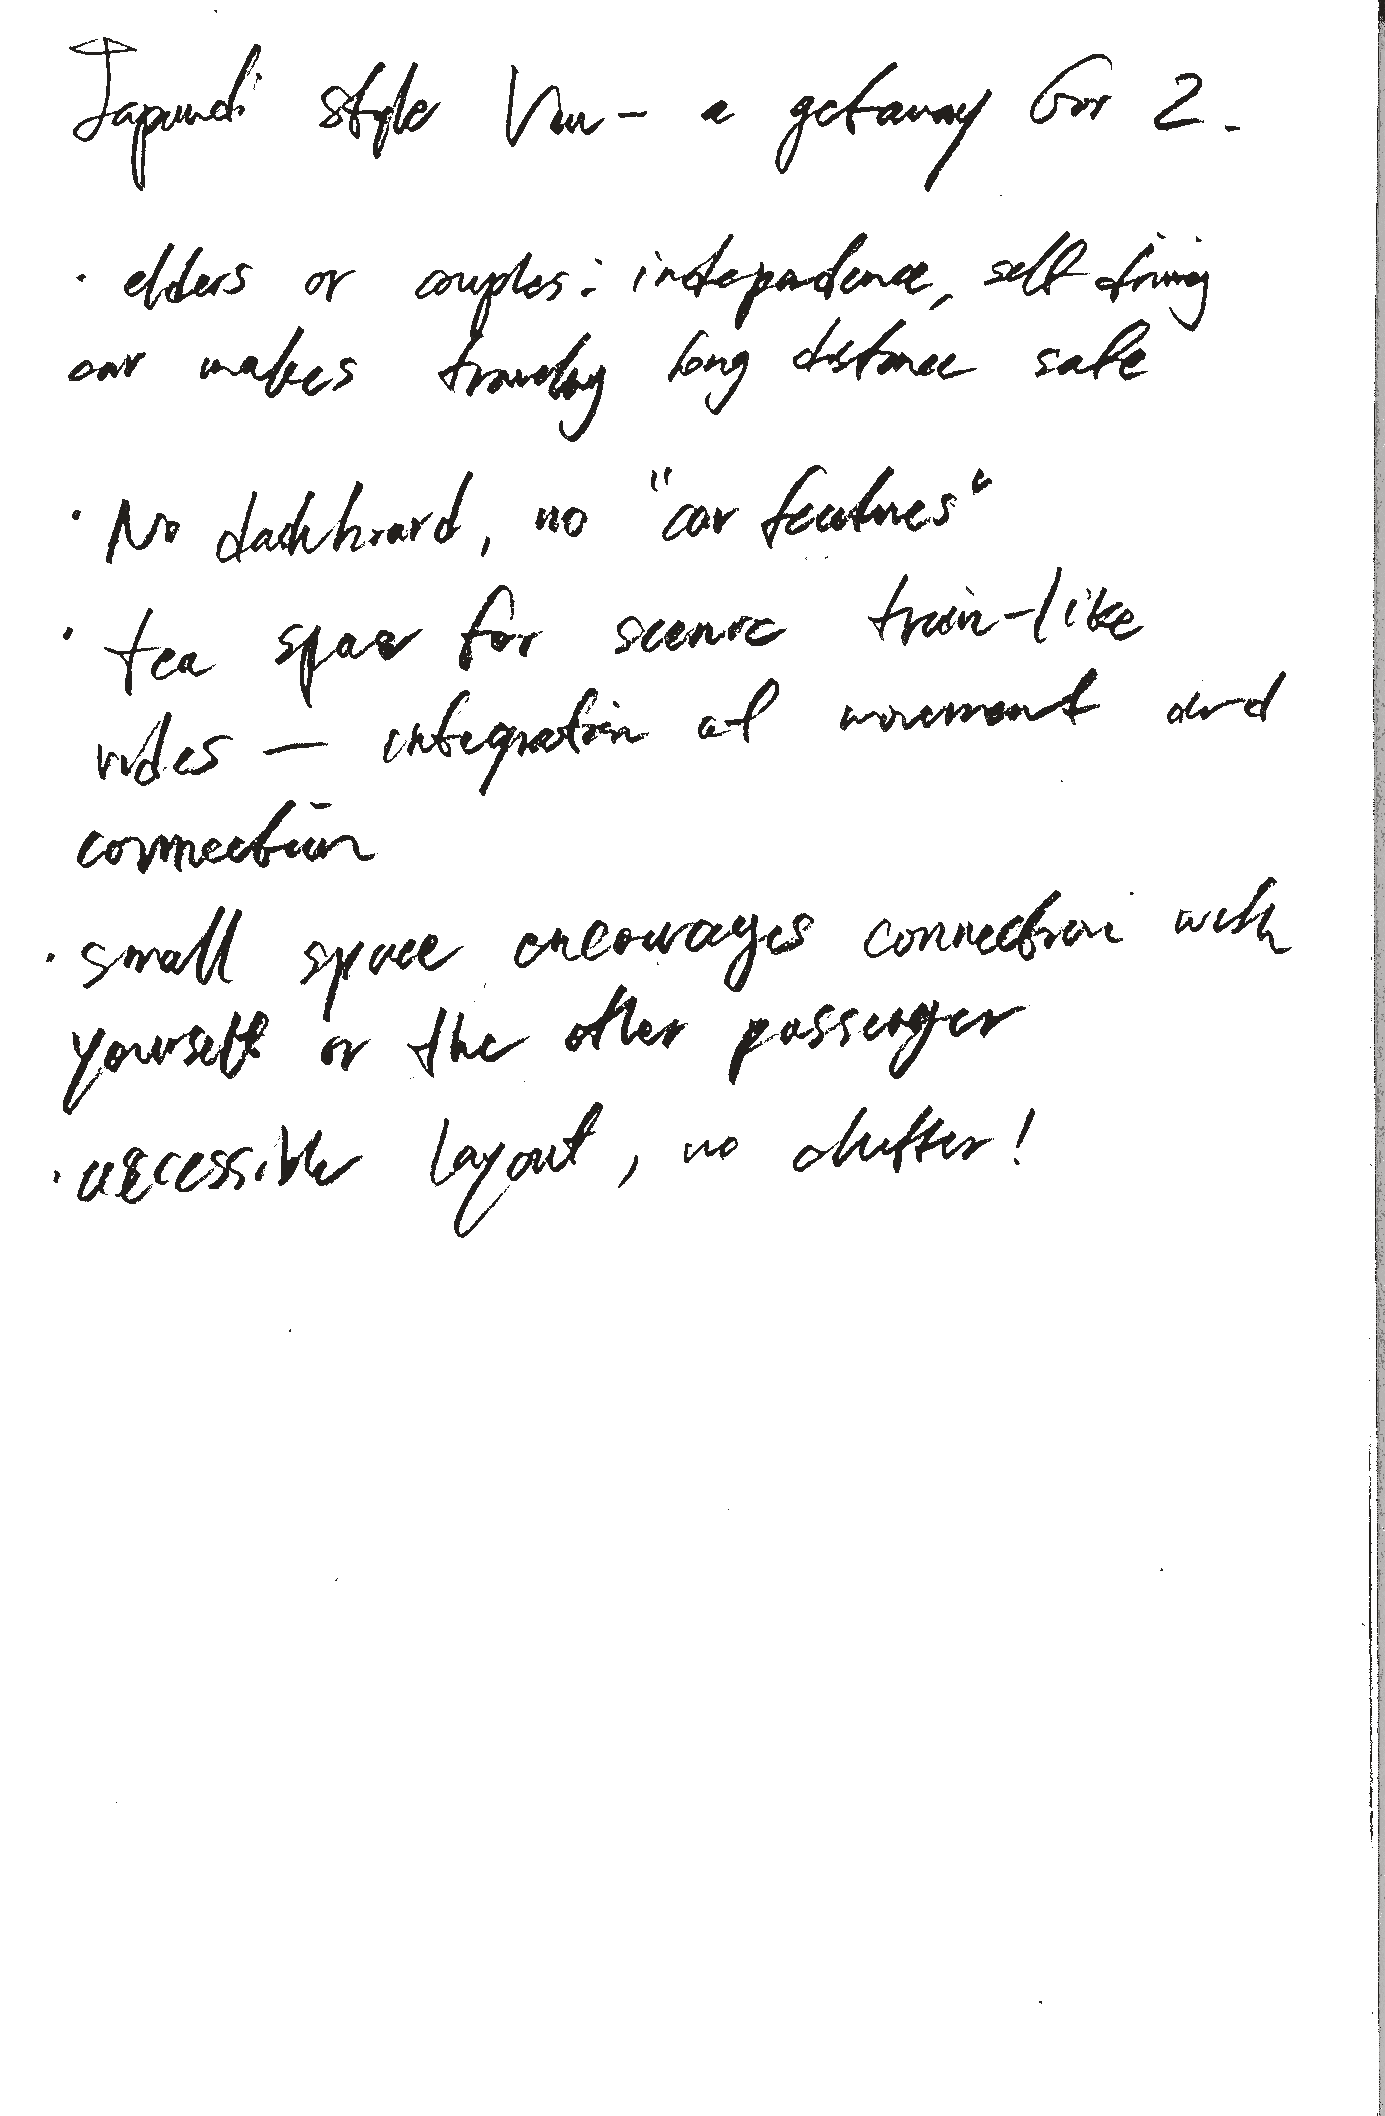 Japandi style Van - a getaway for 2.
· elders or couples: independence, self driving
car makes traveling long distance safe
· No dashboard, no "car features"
· tea space for scenic train-like
rides — integration of movement and
connection
· small space encourages connection with
yourself or the other passenger
· accessible layout, no clutter!